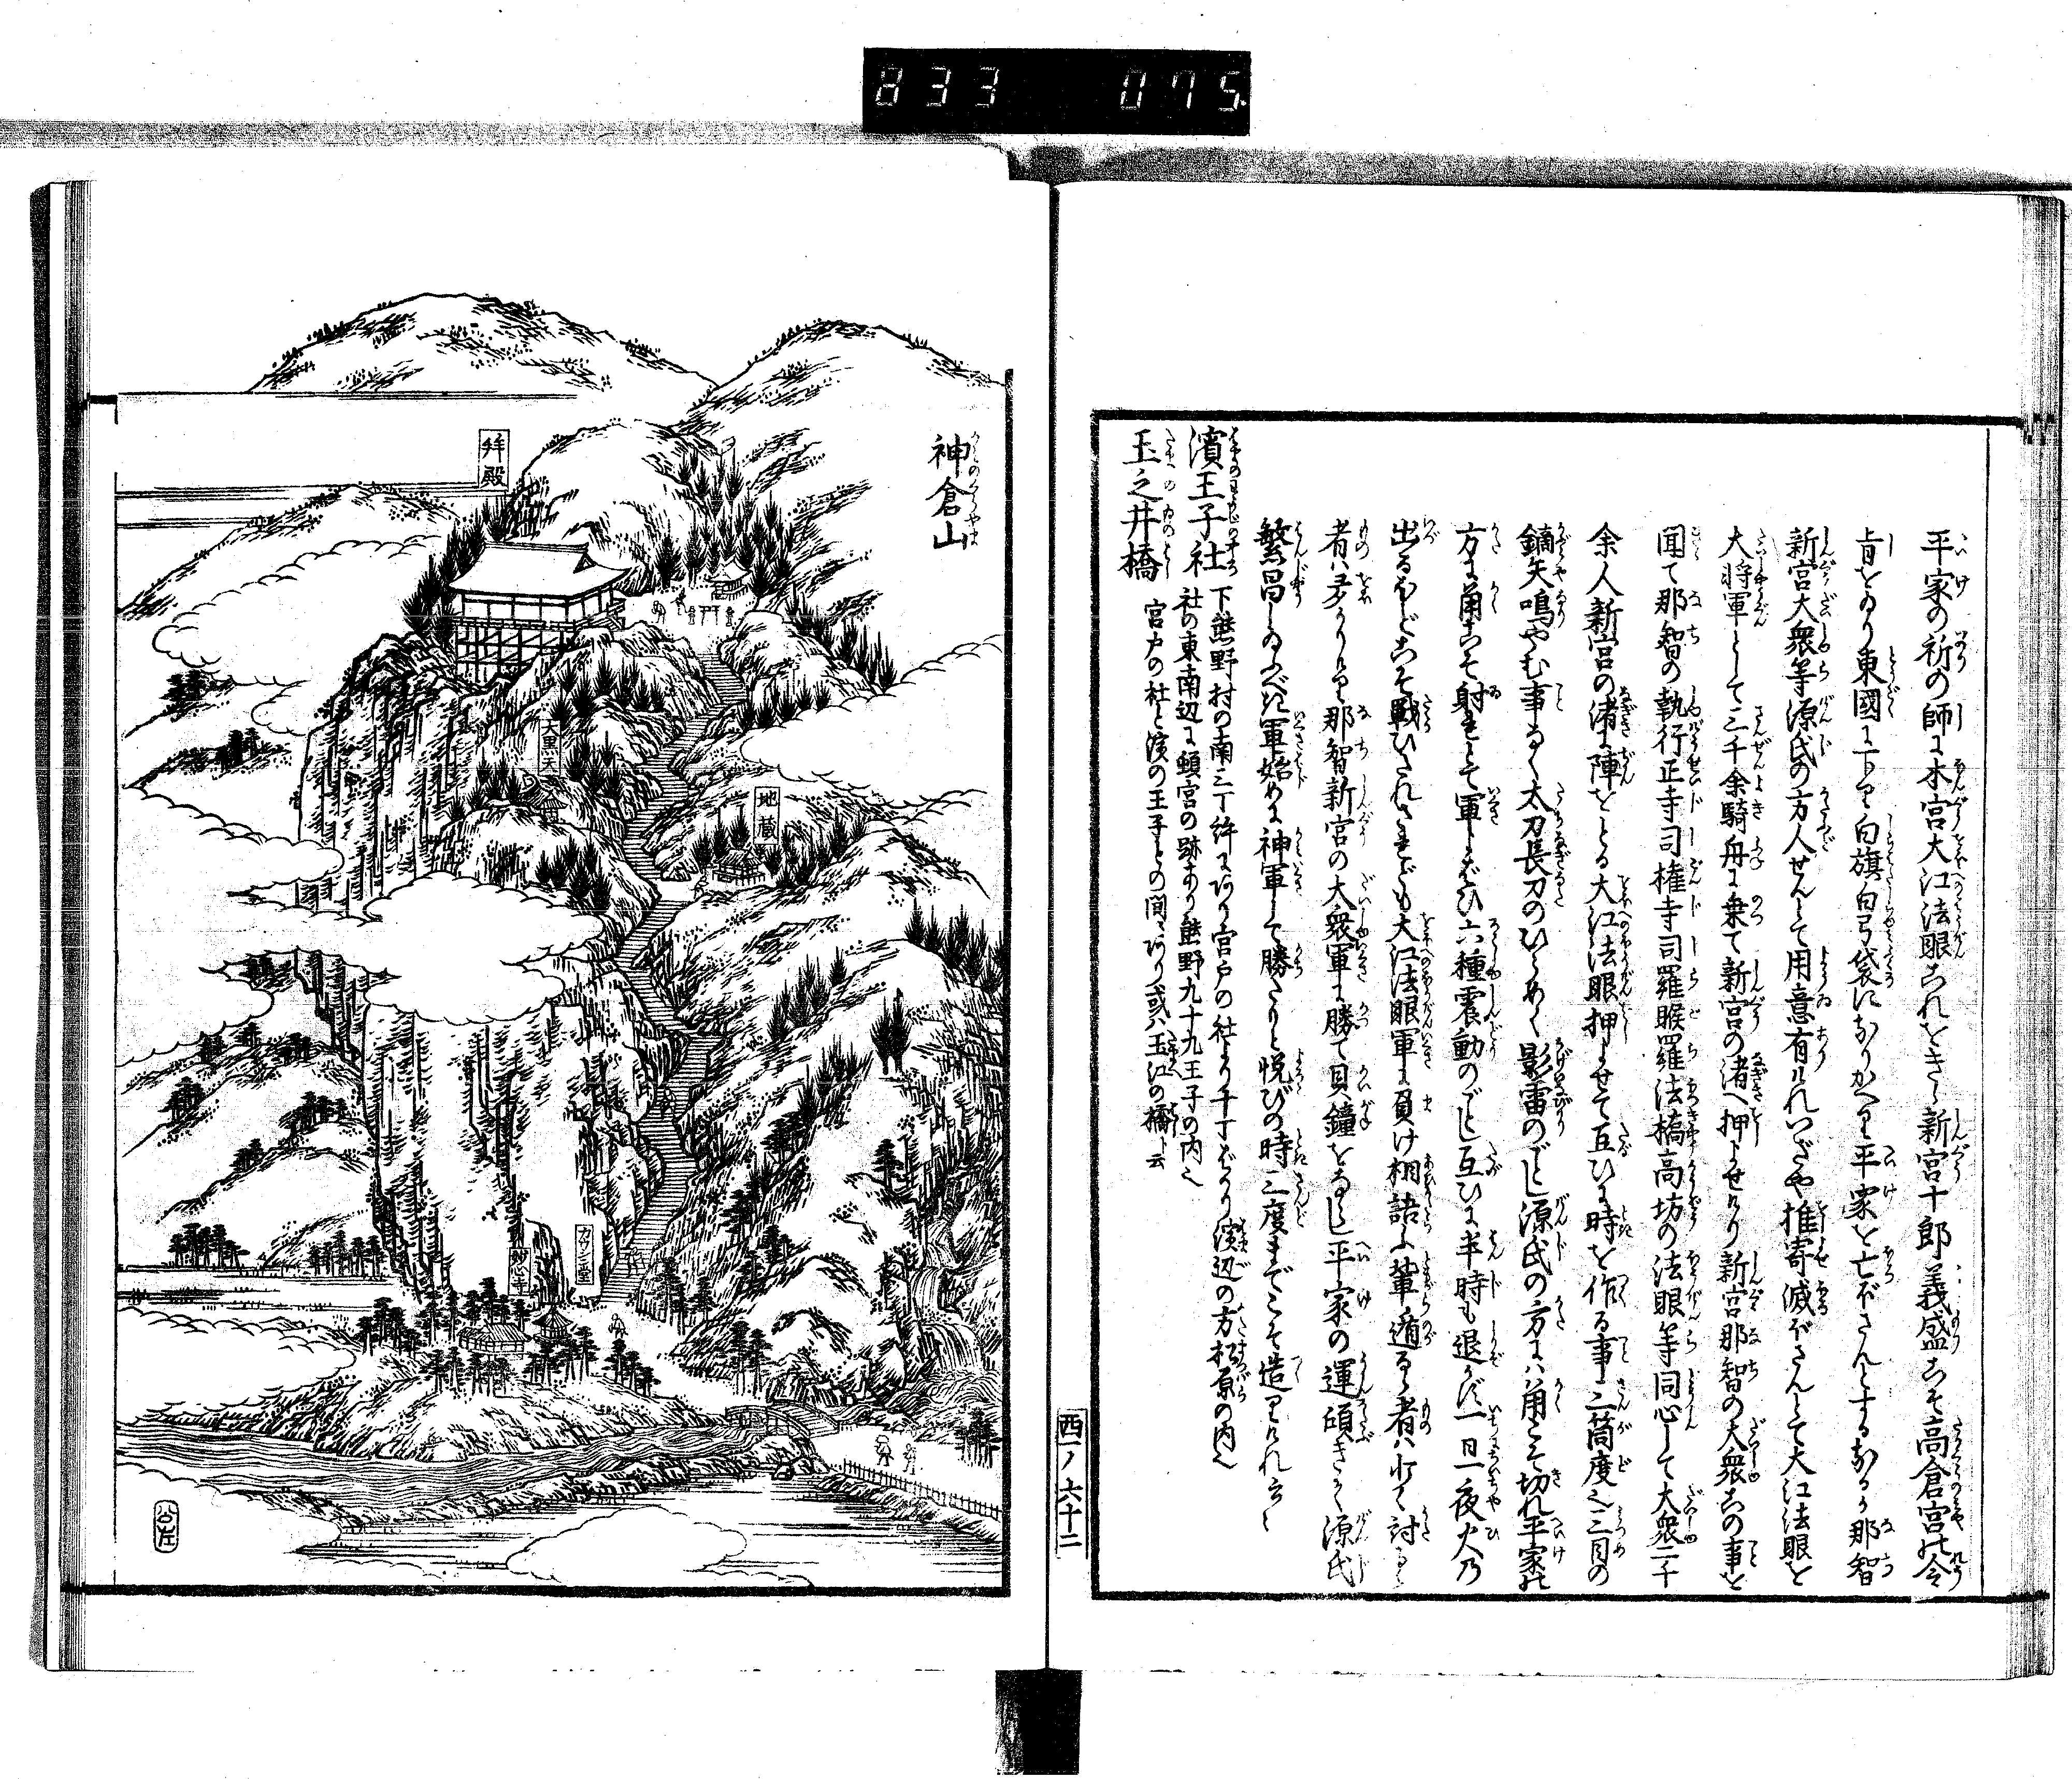 833 075
平家の祈の師に本宮大江法眼これをきゝ新宮十郎義盛こそ高倉宮の令
旨をゐり東國に下り白旗白弓袋になりかへり平家を亡ぼさんとするなるが那智
新宮大衆等源氏の方人せんとて用意有けれいざや推寄滅ぼさんとて大江法眼を
大將軍として三千余騎舟に乗て新宮の渚へ押よせけり新宮那智の大衆この事を
聞て那智の執行正寺司権寺司羅睺羅法橋高坊の法眼等同心して大衆二千
余人新宮の渚に陣をとる大江法眼押よせて互ひに時を作る事三箇度之三目の
鏑矢鳴やむ事なく太刀長刀のひらめく影雷のごとし源氏の方にハ角こそ切れ平家の
方に角こそ射れとて軍よばひ六種震動のごとし互ひに半時も退かず一日一夜火乃
出るほどこそ戦ひたれされども大江法眼軍に負け相語ふ輩遁るゝ者ハ少く討るゝ
者ハ多かりけり那智新宮の大衆軍に勝て貝鐘をならし平家の運傾きかく源氏
繁昌しゐふべき軍始めに神軍して勝たりと悦びの時三度までこそ造りけれ云〻
濱王子社 下熊野村の南三丁許にあり宮戸の社より半丁ばかり濱辺の方松原の内へ
社の東南辺に頓宮の跡あり熊野九十九王子の内へ
玉之井橋 宮戸の社と濱の王子との間にあり或ハ玉江の橋と云
西一ノ六十二
神倉山
かみのくらやま
拜殿
大黒天
地蔵
妙心寺
公左